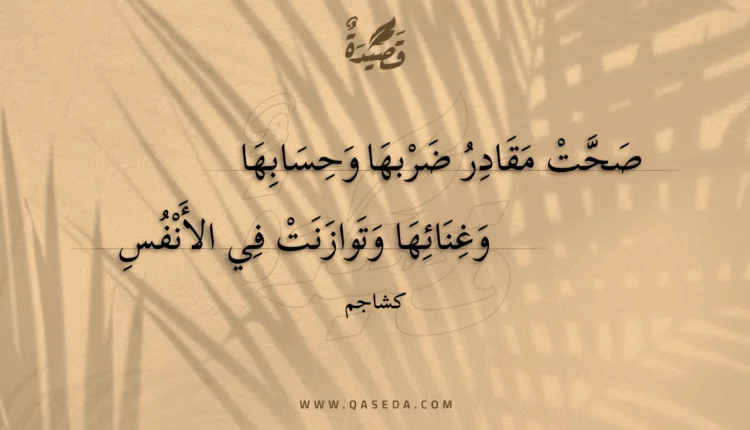 قَصِيدَةٌ
صَحَّتْ مَقَادِرُ ضَرْبِهَا وَحِسَابِهَا
وَغِنَائِهَا وَتَوازَنَتْ فِي الأَنْفُسِ
كشاجم
WWW.QASEDA.COM